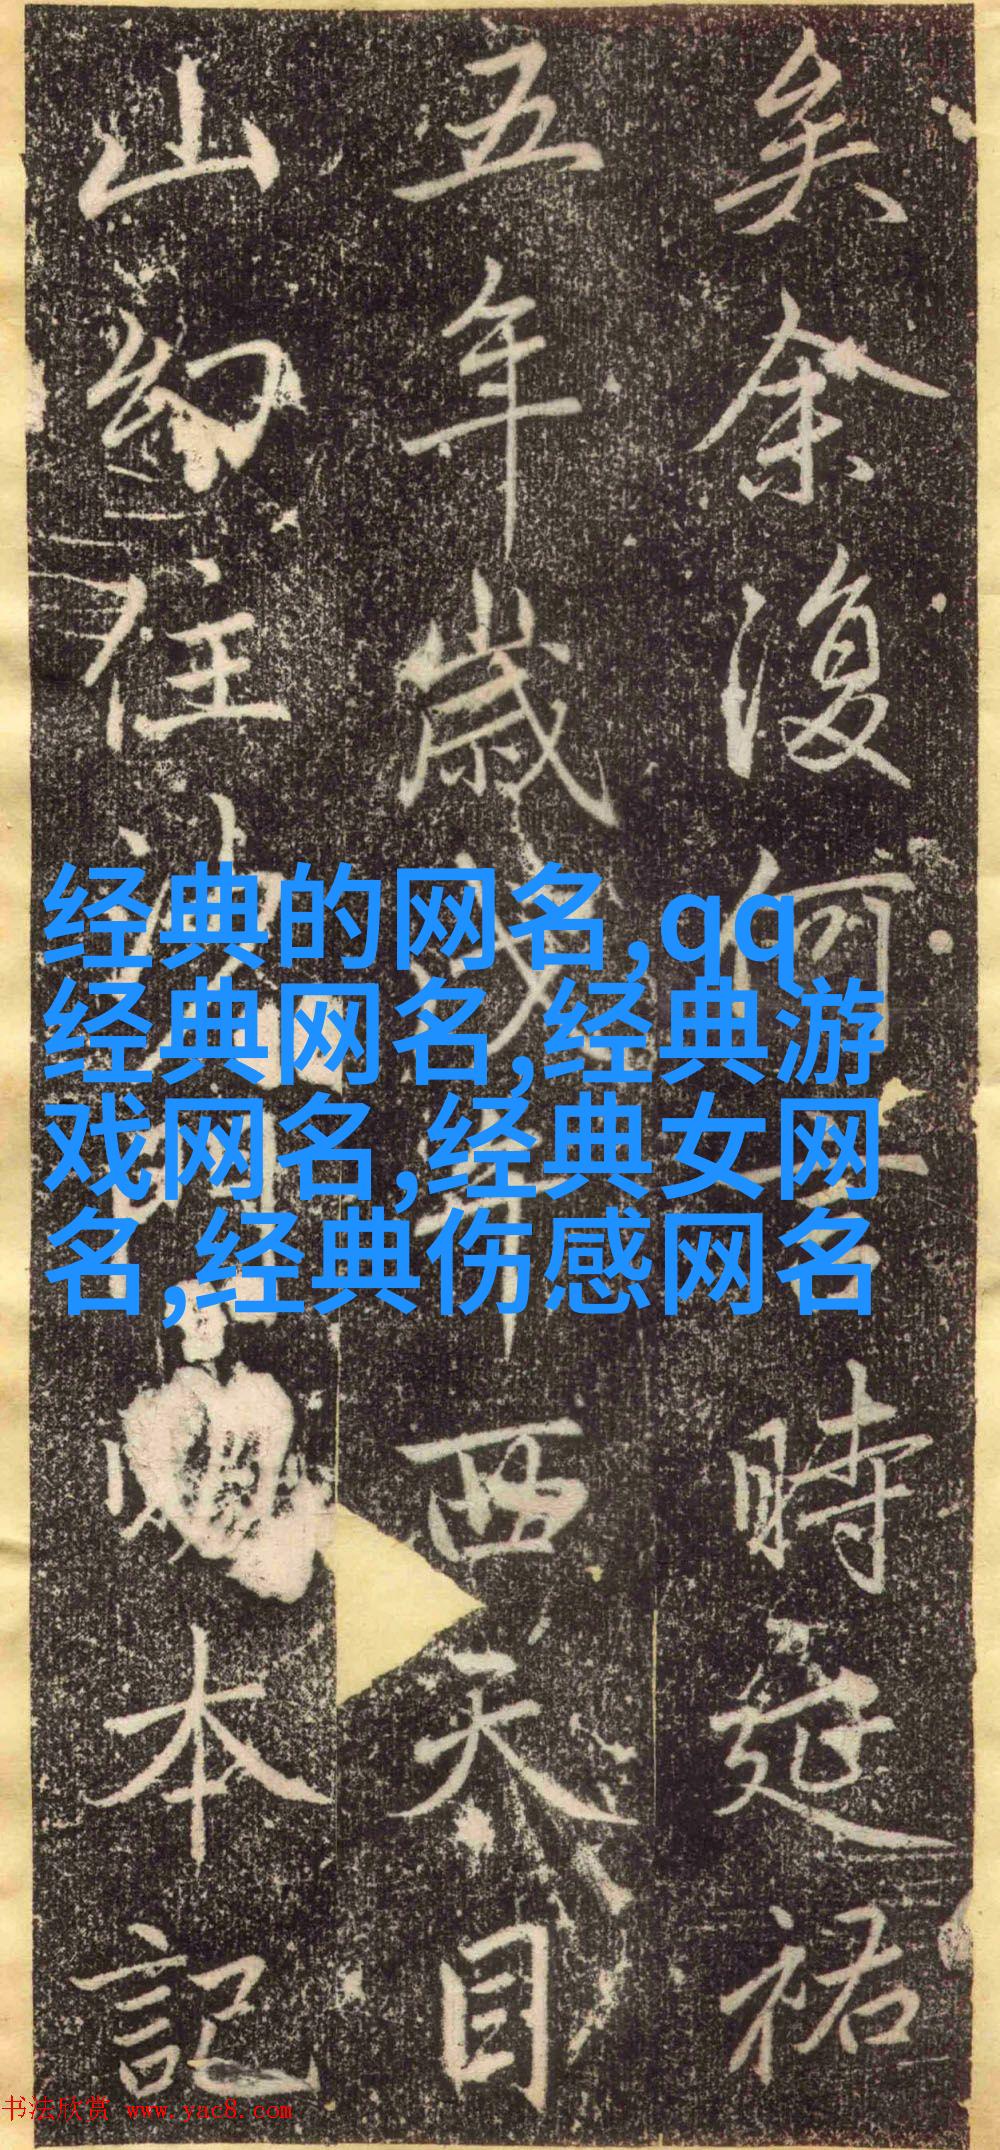 矣余復何言時延祐
五年歲戊午西天目
山幻住沙門本記
经典的网名,qq
经典网名,经典游
戏网名,经典女网
名,经典伤感网名
书法欣赏 www.yac8.com